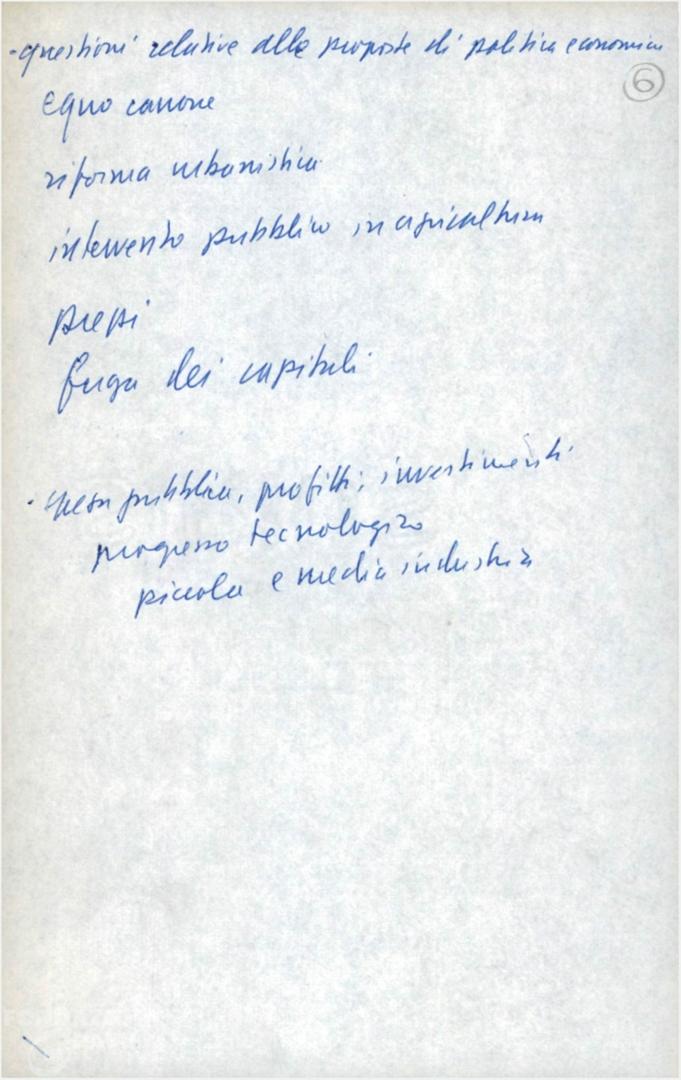 - questioni relative alle proposte di politica economica
6
equo canone
riforma urbanistica
intervento pubblico in agricoltura
prezzi
fuga dei capitali
- spesa pubblica, profitti, investimenti
progresso tecnologico
piccola e media industria